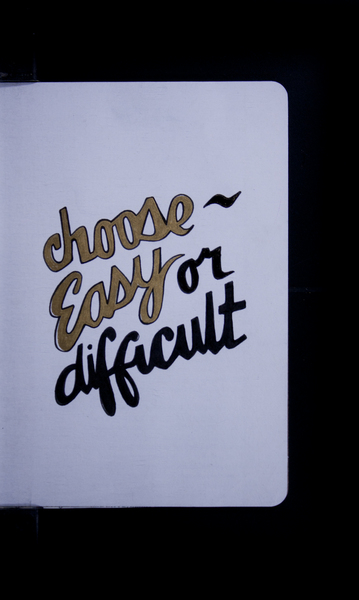 choose ~
Easy or
difficult